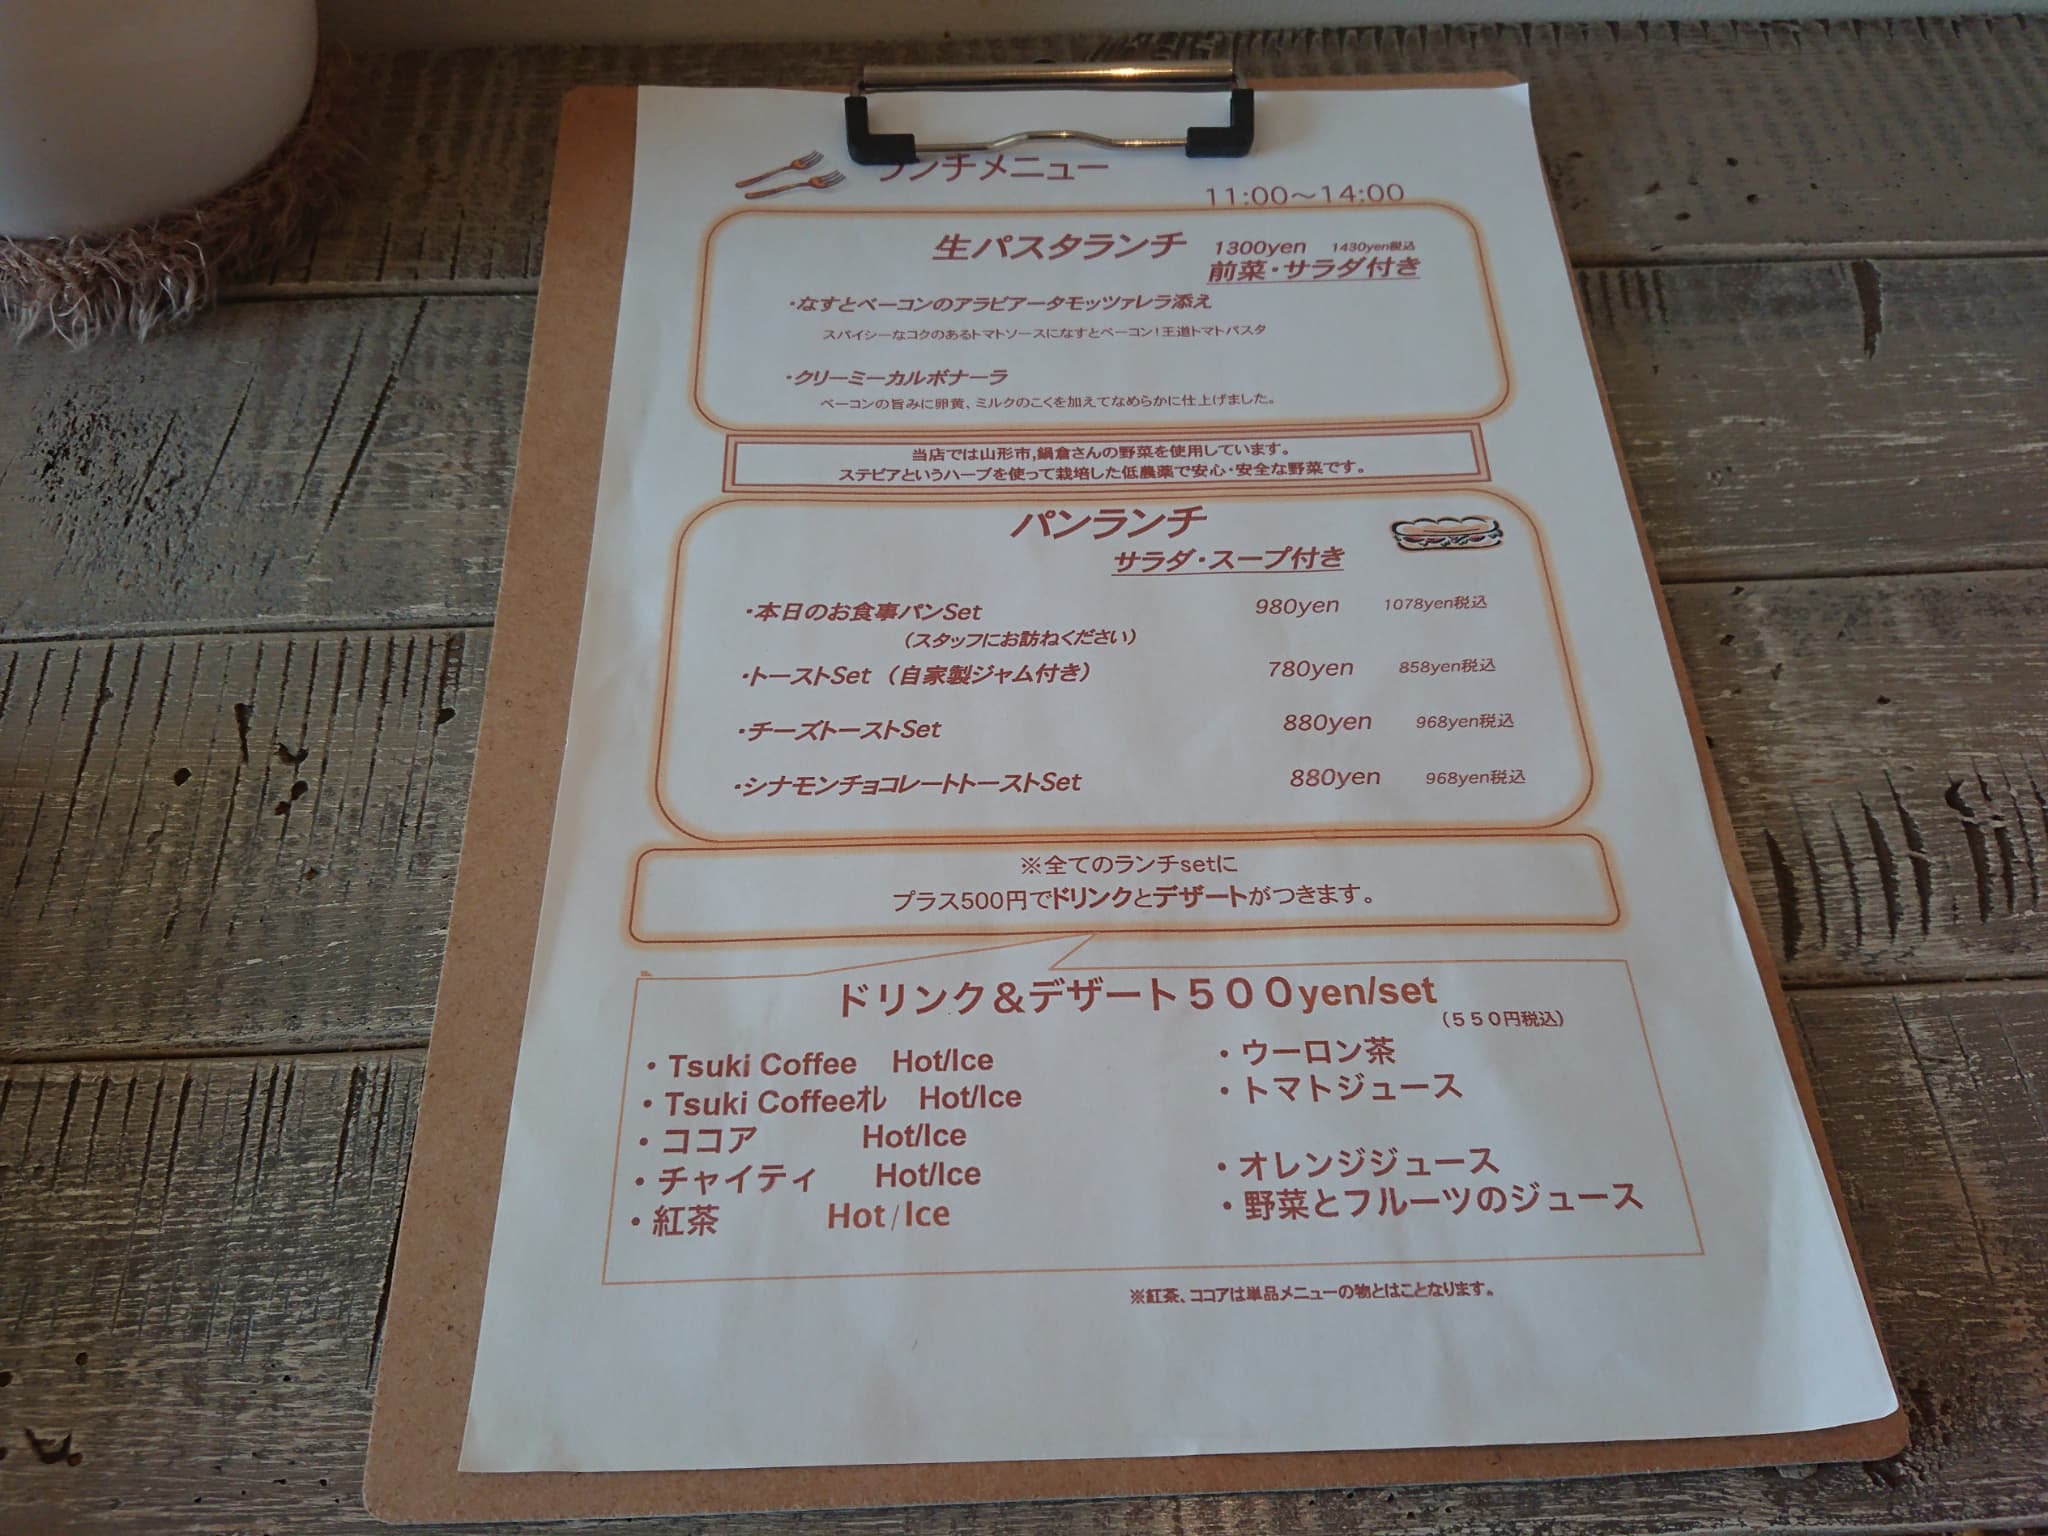 ランチメニュー
11:00～14:00
生パスタランチ 1300yen 1430yen税込
前菜・サラダ付き
・なすとベーコンのアラビアータモッツァレラ添え
スパイシーなコクのあるトマトソースになすとベーコン！王道トマトパスタ
・クリーミーカルボナーラ
ベーコンの旨みに卵黄、ミルクのこくを加えてなめらかに仕上げました。
当店では山形市,鍋倉さんの野菜を使用しています。
ステビアというハーブを使って栽培した低農薬で安心・安全な野菜です。
パンランチ
サラダ・スープ付き
・本日のお食事パンSet 980yen 1078yen税込
（スタッフにお訪ねください）
・トーストSet （自家製ジャム付き） 780yen 858yen税込
・チーズトーストSet 880yen 968yen税込
・シナモンチョコレートトーストSet 880yen 968yen税込
※全てのランチsetに
プラス500円でドリンクとデザートがつきます。
ドリンク＆デザート５００yen/set
（５５０円税込）
・Tsuki Coffee Hot/Ice
・Tsuki Coffeeｵﾚ Hot/Ice
・ココア Hot/Ice
・チャイティ Hot/Ice
・紅茶 Hot/Ice
・ウーロン茶
・トマトジュース
・オレンジジュース
・野菜とフルーツのジュース
※紅茶、ココアは単品メニューの物とはことなります。